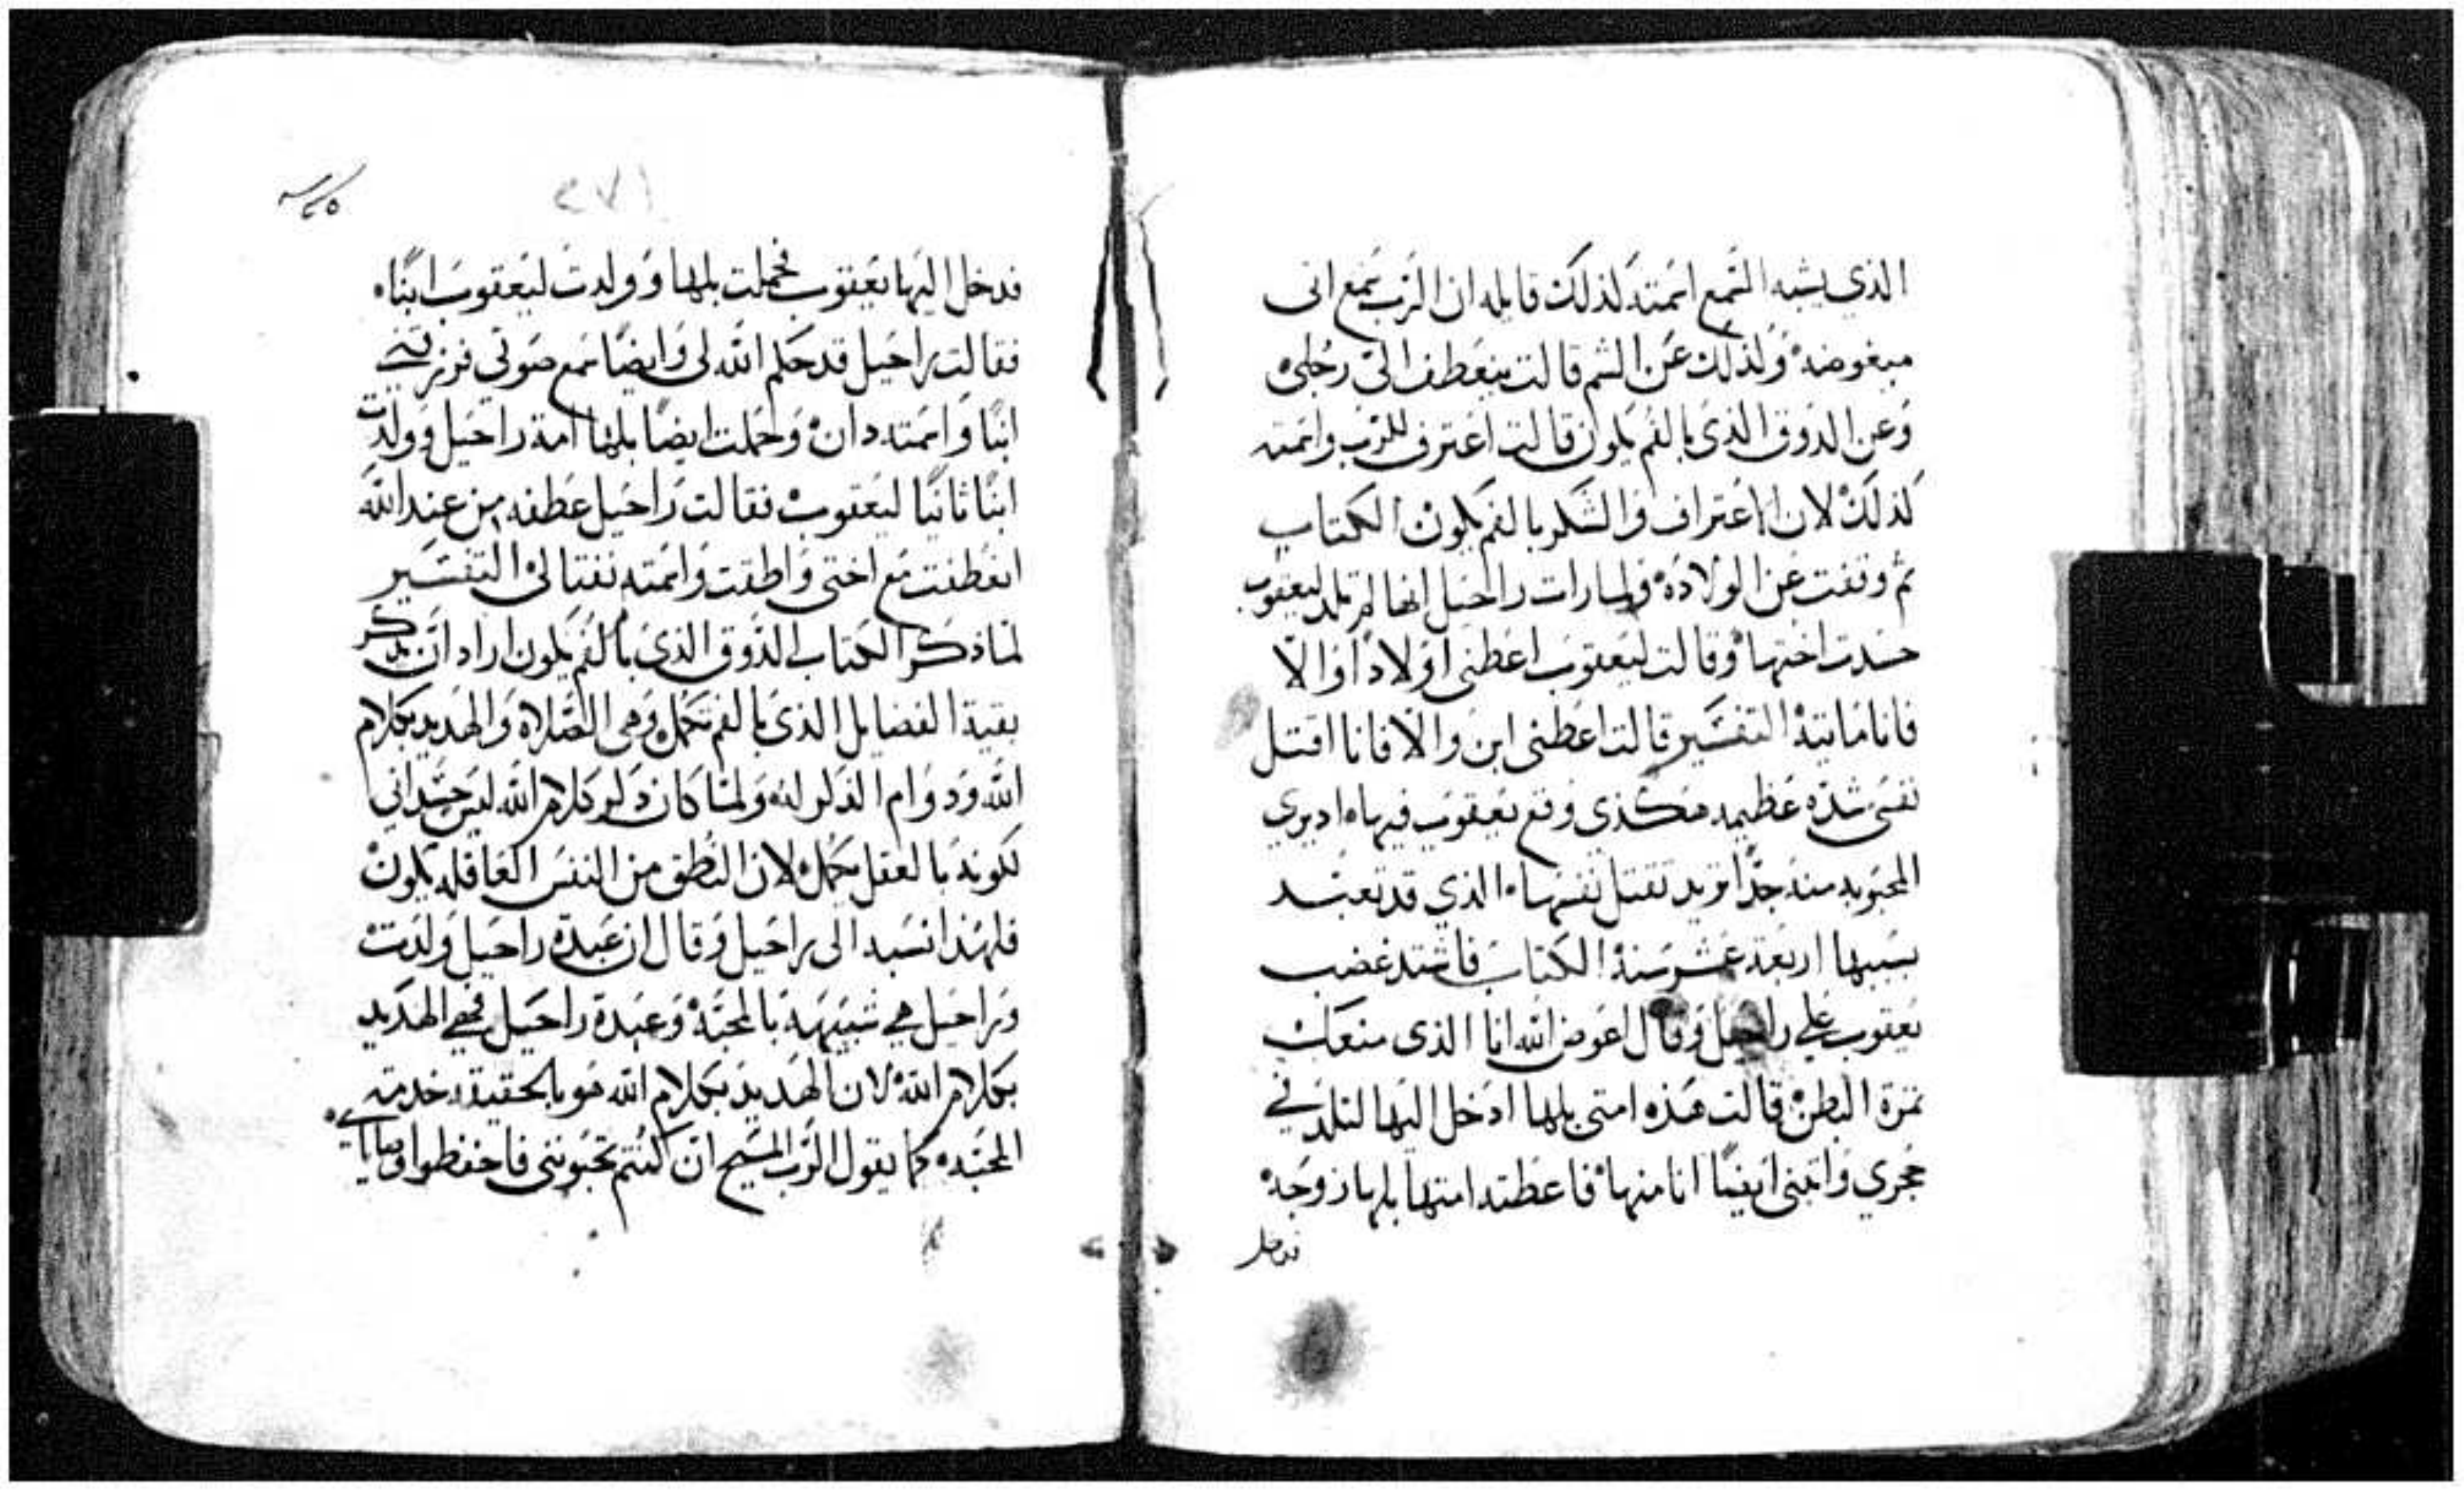 الذي يشبه السمع اسمته لذلك قايله ان الرب سمع انى
مبغوضه ولذلك عن الشم قالت ينعطف الىّ رجلى
وعن الذوق الذى بالفم يكون قالت اعترف للرب واسمته
كذلك لان الاعتراف والشكر بالفم يكون الكتاب
ثم وقفت عن الولاده ولما رات راحيل انها لم تلد ليعقوب
حسدت اختها وقالت ليعقوب اعطنى اولاداً والا
فانا مايتة التفسير قالت اعطنى ابن والا فانا اقتل
نفسى شدّه عظيمه هكذى وقع يعقوب فيها
المحبوبه منه جدًا تريد تقتل نفسها الذي قد تعبد
بسببها اربعة عشر سنة الكتاب فاشتد غضب
يعقوب علي راحيل وقال اعوض الله انا الذى منعك
ثمرة البطن قالت هذه امتى بلها ادخل اليها لتلد في
حجري وابتنى ايضًا انا منها فاعطته امتها بلها زوجه
فدخل
٢٧١
فدخل اليها يعقوب فحملت بلها وولدت ليعقوب ابنًا
فقالت راحيل قد حكم الله لى وايضًا سمع صوتي فرزقني
ابنًا واسمته دان وحملت ايضًا بلها امة راحيل وولدت
ابنًا ثانيًا ليعقوب فقالت راحيل عطفه من عند الله
انعطفت مع اختى واطقت واسمته نفتالى التفسير
لما ذكر الكتاب الذوق الذى بالفم يكون اراد ان يذكر
بقية الفضايل الذى بالفم تكمل وهى الصلاة والهديد بكلام
الله ودوام الذكر له ولما كان ذكر كلام الله ليس جسداني
لكونه بالعقل يكمل لان النطق من النفس العاقله يكون
فلهذا نسبه الى راحيل وقال ان عبدة راحيل ولدت
وراحيل هي شبيهه بالمحبّة وعبدة راحيل فهي الهديد
بكلام الله لان الهديد بكلام الله هو بالحقيقة خدمة
المحبّه كما يقول الرب المسيح ان كنتم تحبونى فاحفظوا وصاياي